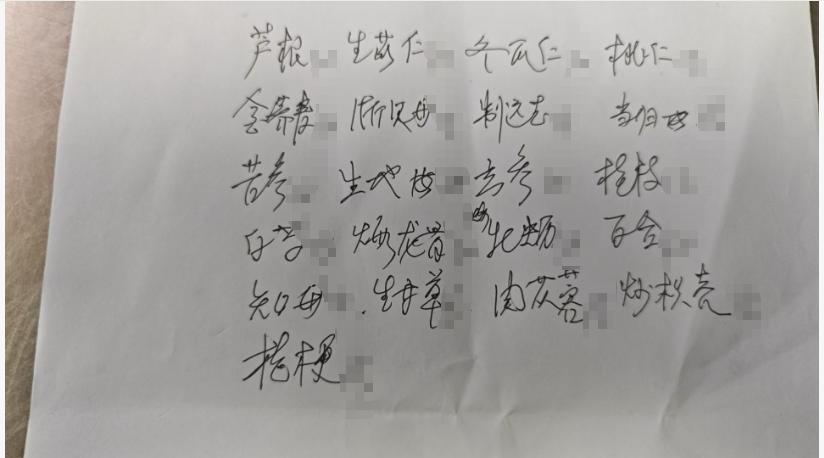 芦根 生苡仁 冬瓜仁 桃仁
金荞麦 浙贝母 制远志 当归
苦参 生地 玄参 桂枝
白芍 煅龙骨 煅牡蛎 百合
知母 生甘草 肉苁蓉 炒枳壳
桔梗